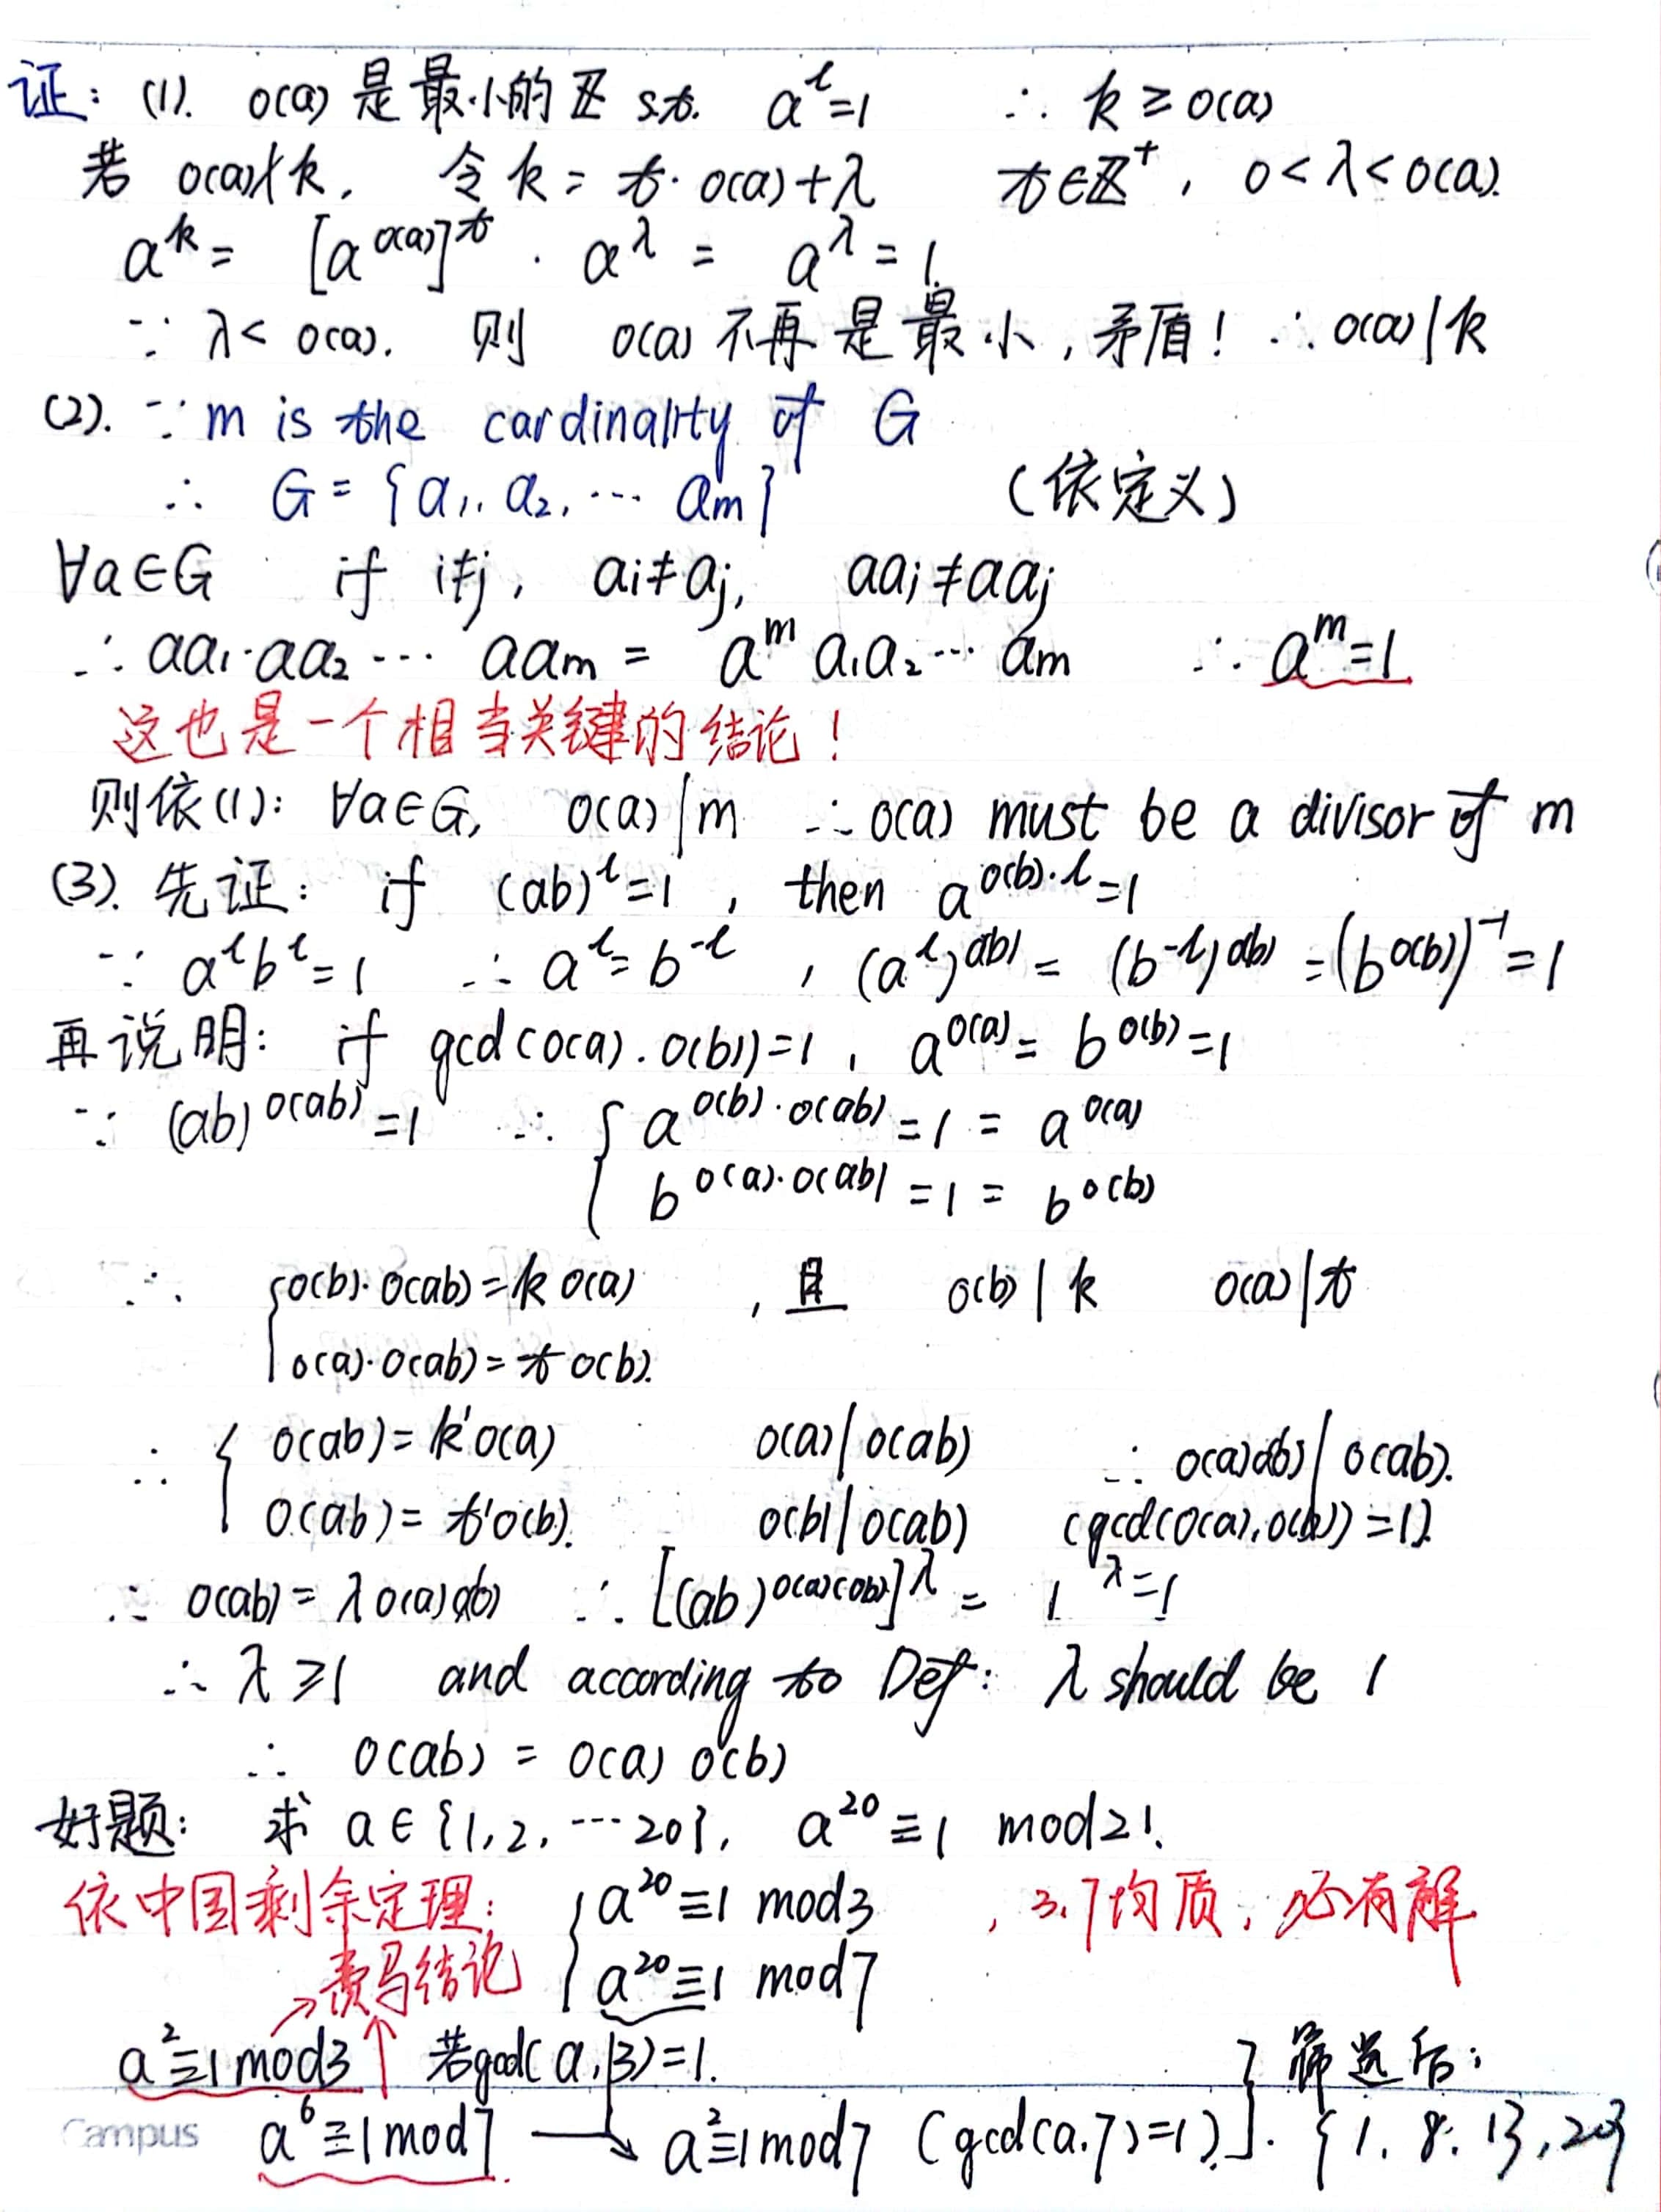 证：(1). o(a) 是最小的 ℤ s.t. a^l=1 ∴ k ≥ o(a)
若 o(a)∤k, 令 k = t·o(a)+λ t∈ℤ⁺, 0<λ<o(a).
a^k = [a^{o(a)}]^t · a^λ = a^λ = 1.
∵ λ< o(a). 则 o(a) 不再是最小, 矛盾! ∴ o(a)|k
(2). ∵ m is the cardinality of G
∴ G = {a₁, a₂, ⋯ aₘ} (依定义)
∀a∈G if i≠j, aᵢ≠aⱼ, aaᵢ≠aaⱼ
∴ aa₁·aa₂ ⋯ aaₘ = a^m a₁a₂⋯aₘ ∴ a^m=1
这也是一个相当关键的结论!
则依(1): ∀a∈G, o(a)|m ∴ o(a) must be a divisor of m
(3). 先证: if (ab)^l=1, then a^{o(b)·l}=1
∵ a^l b^l=1 ∴ a^l=b^{-l}, (a^l)^{o(b)} = (b^{-l})^{o(b)} = (b^{o(b)})^{-1} = 1
再说明: if gcd(o(a).o(b))=1, a^{o(a)} = b^{o(b)} = 1
∵ (ab)^{o(ab)}=1 ∴ { a^{o(b)·o(ab)} = 1 = a^{o(a)}
b^{o(a)·o(ab)} = 1 = b^{o(b)}
∴ { o(b)·o(ab) = k o(a), 且 o(b)|k o(a)|t
o(a)·o(ab) = t o(b).
∴ { o(ab) = k'o(a) o(a)|o(ab) ∴ o(a)o(b)|o(ab).
o(ab) = t'o(b). o(b)|o(ab) (gcd(o(a),o(b))=1).
∴ o(ab) = λo(a)o(b) ∴ [(ab)^{o(a)o(b)}]^λ = 1^λ=1
∴ λ ≥1 and according to Def: λ should be 1
∴ o(ab) = o(a) o(b)
好题: 求 a∈{1,2,⋯20}, a^20 ≡1 mod21.
依中国剩余定理: { a^20 ≡1 mod3, 3.7均质, 必有解
费马结论 a^20≡1 mod7
a²≡1mod3 ↑ 若gcd(a,3)=1. } 筛选后:
Campus a⁶≡1mod7 → a²≡1mod7 (gcd(a.7)=1). {1. 8. 13, 20}